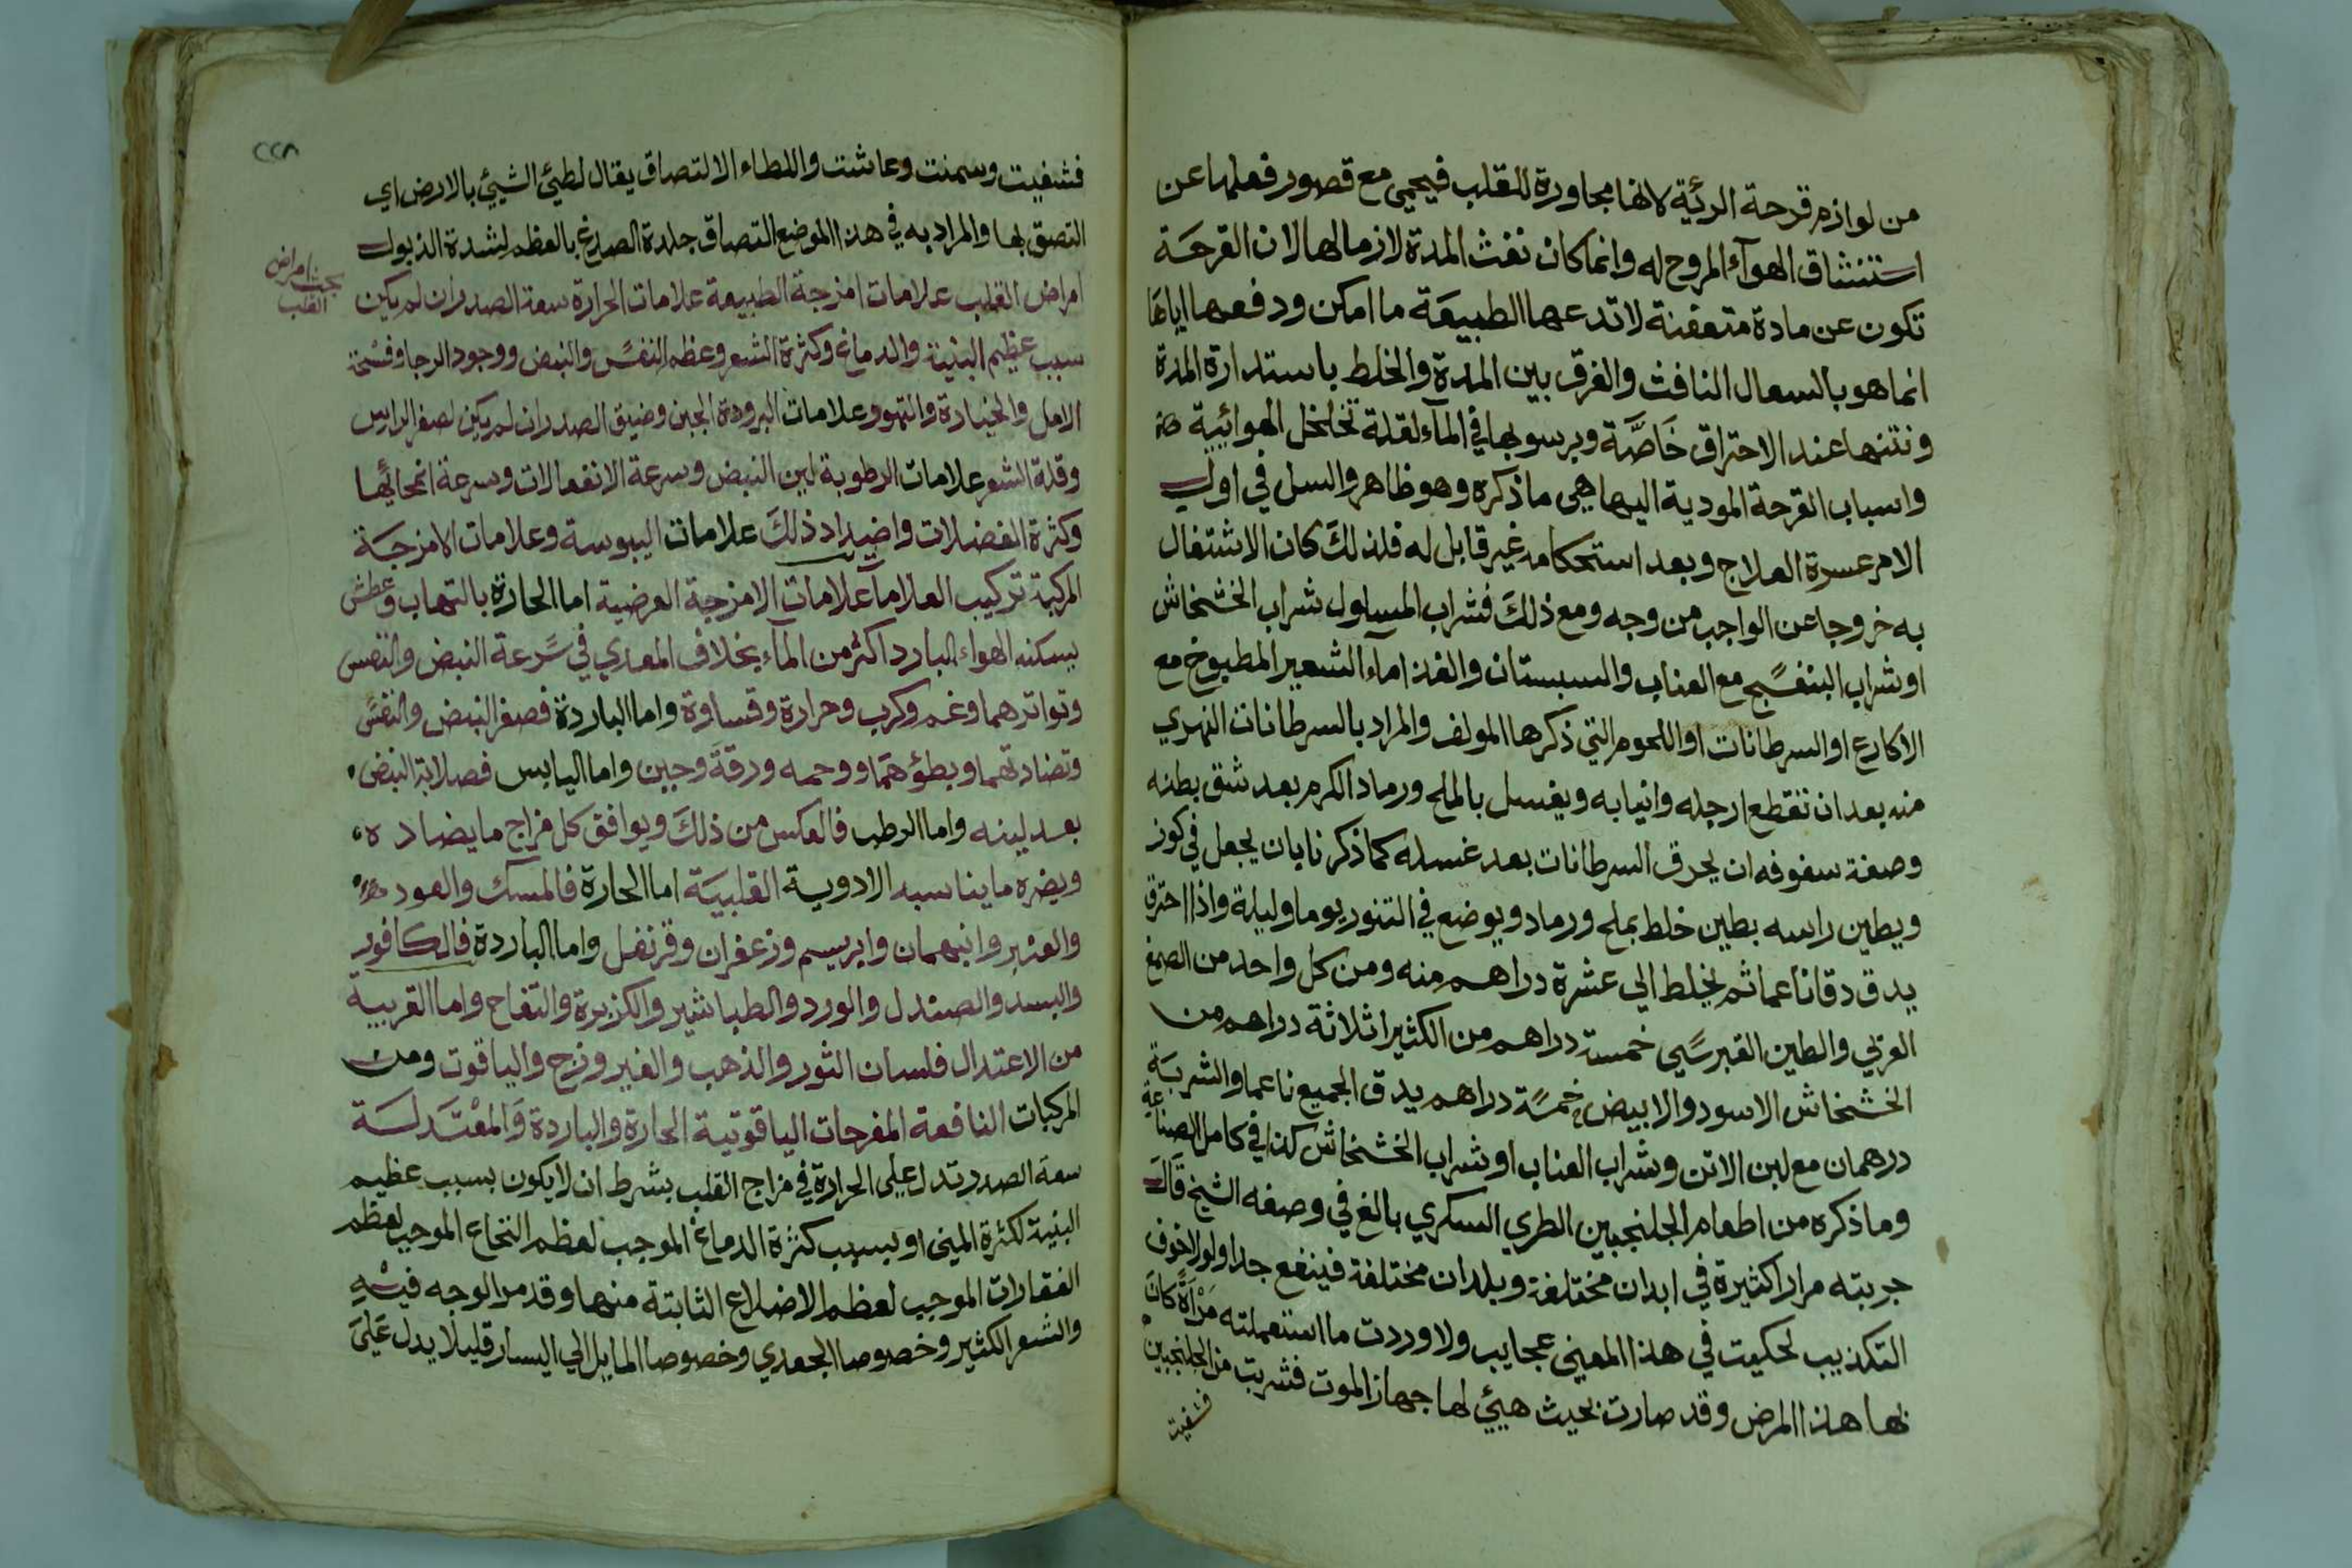 من لوازم قرحة الرئية لانها مجاورة للقلب فيحمى مع قصور فعلها عن
استنشاق الهوآء المروح له وانما كان نفث المدة لازما لها لان القرحة
تكون عن مادة متعفنة لا تدعها الطبيعة ما امكن ودفعها اياها
انما هو بالسعال النافث والفرق بين المدة والخلط باستدارة المدة
ونتنها عند الاحتراق خاصّة وبرسوبها في المآء لقلة تخلخل الهوائية
واسباب القرحة المودية اليها هي ما ذكره وهو ظاهر والسل في اول
الامر عسرة العلاج وبعد استحكامه غير قابل له فلذلك كان الاشتغال
به خروجا عن الواجب من وجه ومع ذلك فشراب المسلول شراب الخشخاش
او شراب البنفسج مع العناب والسبستان والغذا ماء الشعير المطبوخ مع
الاكارع او السرطانات او اللحوم التي ذكرها المولف والمراد بالسرطانات النهري
منه بعد ان تقطع ارجله وانيابه ويغسل بالملح ورماد الكرم بعد شق بطنه
وصفة سفوفه ان يحرق السرطانات بعد غسله كما ذكرنا بان يجعل في كوز
ويطين راسه بطين خلط بملح ورماد ويوضع في التنور يوما وليلة واذا احترق
يدق دقا ناعما ثم يخلط الي عشرة دراهم منه ومن كل واحد من الصمغ
العربي والطين القبرسي خمسة دراهم من الكثيرا ثلاثة دراهم من
الخشخاش الاسود والابيض خمسة دراهم يدق الجميع ناعما والشربة
درهمان مع لبن الاتن وشراب العناب او شراب الخشخاش كذا في كامل الصناعة
وما ذكره من اطعام الجلنجبين الطري السكري بالغ في وصفه الشيخ قال
جربته مرارا كثيرة في ابدان مختلفة وبلدان مختلفة فينفع جدا ولولا خوف
التكذيب لحكيت في هذا المعني عجايب ولا وردت ما استعملته مرأة كان
بها هذا المرض وقد صارت بحيث هيئ لها جهاز الموت فشربت من الجلنجبين
فشفيت
٢٢٨
فشفيت وسمنت وعاشت واللطاء الالتصاق يقال لطيئ الشيئ بالارض اي
التصق بها والمراد به في هذا الموضع التصاق جلدة الصدغ بالعظم لشدة الذبول
بحث امراض
القلب
امراض القلب علامات امزجة الطبيعة علامات الحرارة سعة الصدر ان لم يكن
سبب عظيم البنية والدماغ وكثرة الشعر وعظم النفس والنبض ووجود الرجا وفسحة
الامل والتهور وعلامات البرودة الجبن وضيق الصدر ان لم يكن لصغر الراس
وقلة الشعر علامات الرطوبة لين النبض وسرعة الانفعالات وسرعة انمحائها
وكثرة الفضلات واضداد ذلك علامات اليبوسة وعلامات الامزجة
المركبة تركيب العلامات علامات الامزجة العرضية اما الحارة بالتهاب وعطش
يسكنه الهواء البارد اكثر من المآء بخلاف المعدي في سرعة النبض والنفس
وتواترهما وغم وكرب وحرارة وقساوة واما الباردة فصغر النبض والنفس
وتضادتهما وبطؤهما ورقة وجبن واما اليابس فصلابة النبض
بعد لينه واما الرطب فالعكس من ذلك ويوافق كل مزاج ما يضاده
ويضره ما يناسبه الادوية القلبية اما الحارة فالمسك والعود
والعنبر وابريسم وزعفران وقرنفل واما الباردة فالكافور
والبسد والصندل والورد والطباشير والكزبرة والتفاح واما القريبة
من الاعتدال فلسان الثور والذهب والفيروزج والياقوت ومن
المركبات النافعة المفرحات الياقوتية الحارة والباردة والمعتدلة
سعة الصدر تدل على الحرارة في مزاج القلب بشرط ان لا يكون بسبب عظيم
البنية لكثرة المني او بسبب كثرة الدماغ الموجب لعظم النخاع الموجب لعظم
الفقارات الموجب لعظم الاضلاع الثابتة منها وقد مر الوجه فيه
والشعر الكثير وخصوصا الجعدي وخصوصا المايل الي اليسار قليلا يدل علي